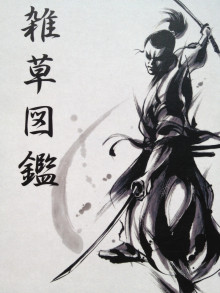 雑草図鑑